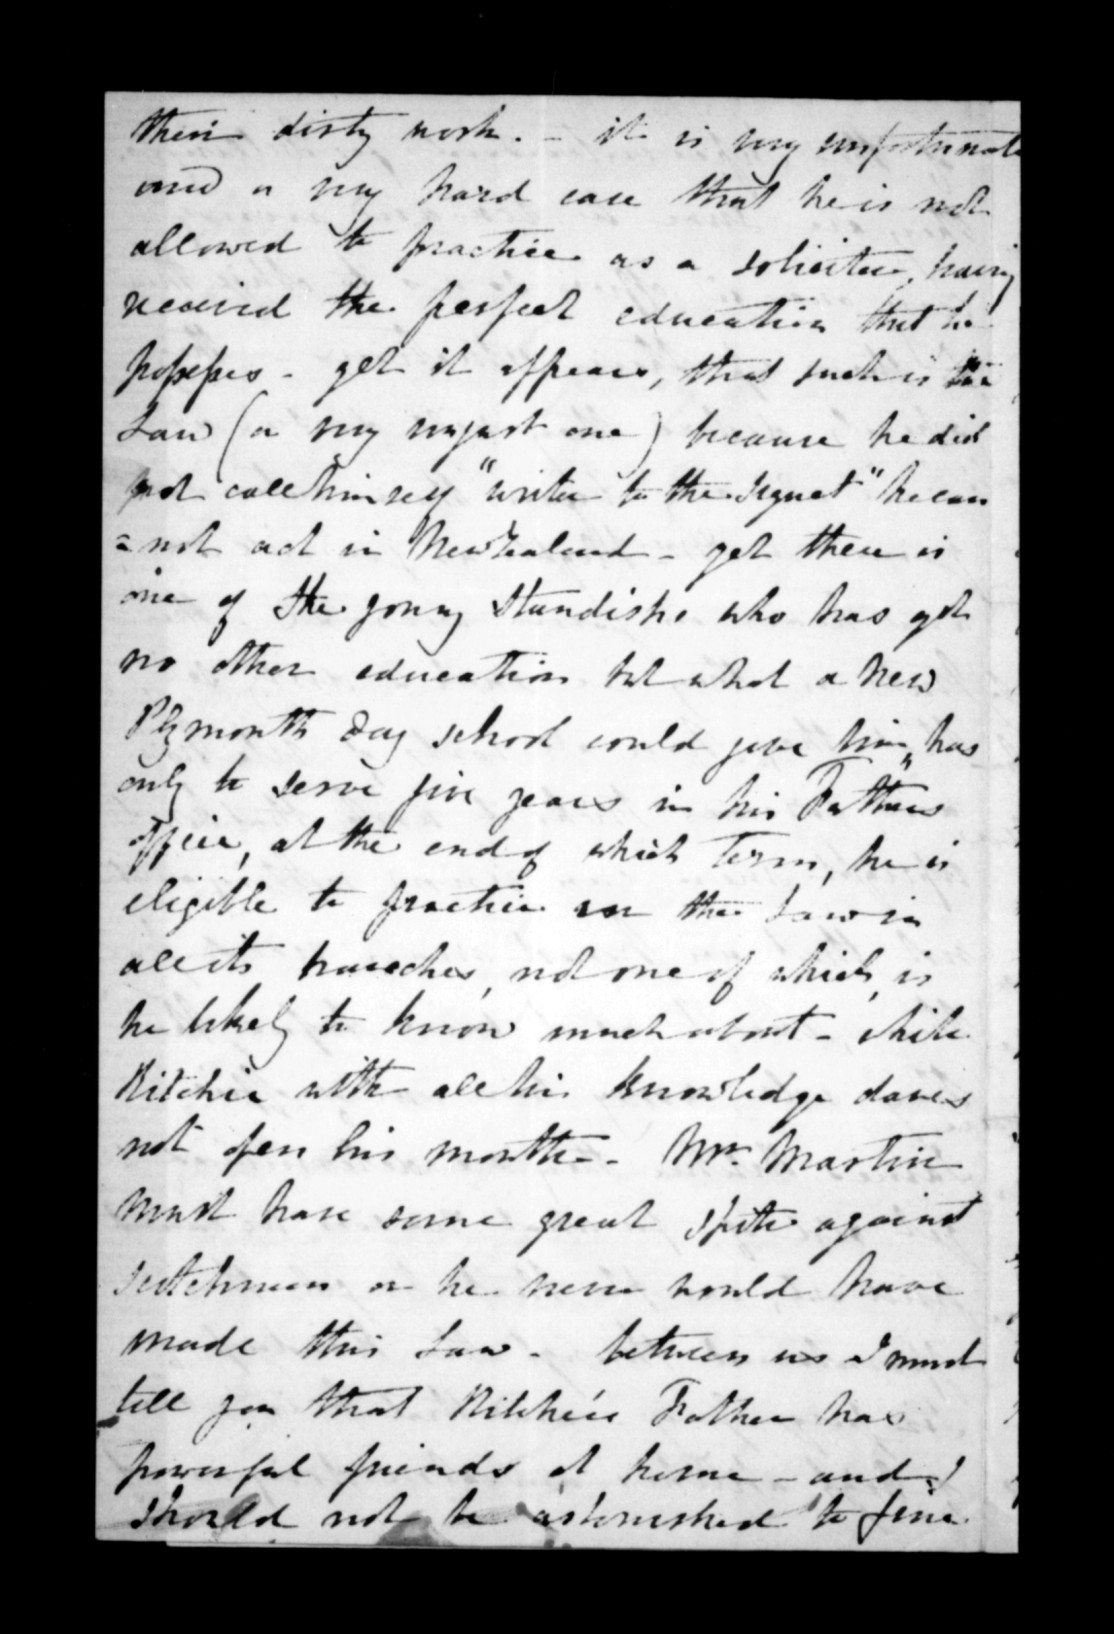 their dirty work. - it is very unfortunate
and a very hard case that he is not
allowed to practice as a solicitor, having
received the perfect education that he
possesses - yet it appears, that such is the
Law (a very unjust one) because he did
not call himself "writer to the Signet" he can
=not act in New Zealand - yet there is
one of the young Standishs who has got
no other education but what a New
Plymouth Day school could give him, has
only to serve five years in his Fathers
office, at the end of which Term, he is
eligible to practice in the Law in
all its branches, not one of which, is
he likely to know much about - while
Ritchie with all his knowledge dares
not open his mouth - Mr. Martin
must have some great spite against
Scotchmen or he never would have
made this Law - between us I must
tell you that Ritchie's Father has
powerful friends at home - and I
should not be astonished to find